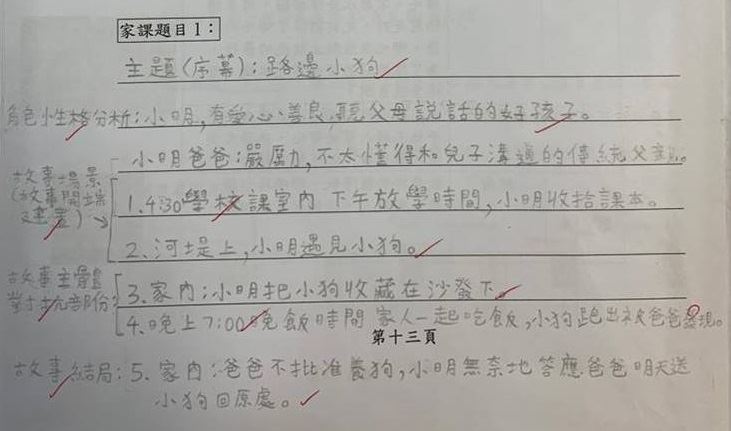 家課題目1：
主題(序幕)：路邊小狗
角色性格分析：小明，有愛心、善良，聽父母說話的好孩子。
小明爸爸：嚴厲，不太懂得和兒子溝通的傳統父親。
故事場景
(故事開端
及建置)→
1. 4:30學校課室內 下午放學時間，小明收拾課本。
2. 河堤上，小明遇見小狗。
故事主體
對抗部份
3. 家內：小明把小狗收藏在沙發下。
4. 晚上7:00晚飯時間 家人一起吃飯，小狗跑出被爸爸發現。
第十三頁
故事結局：5. 家內：爸爸不批准養狗，小明無奈地答應爸爸明天送
小狗回原處。